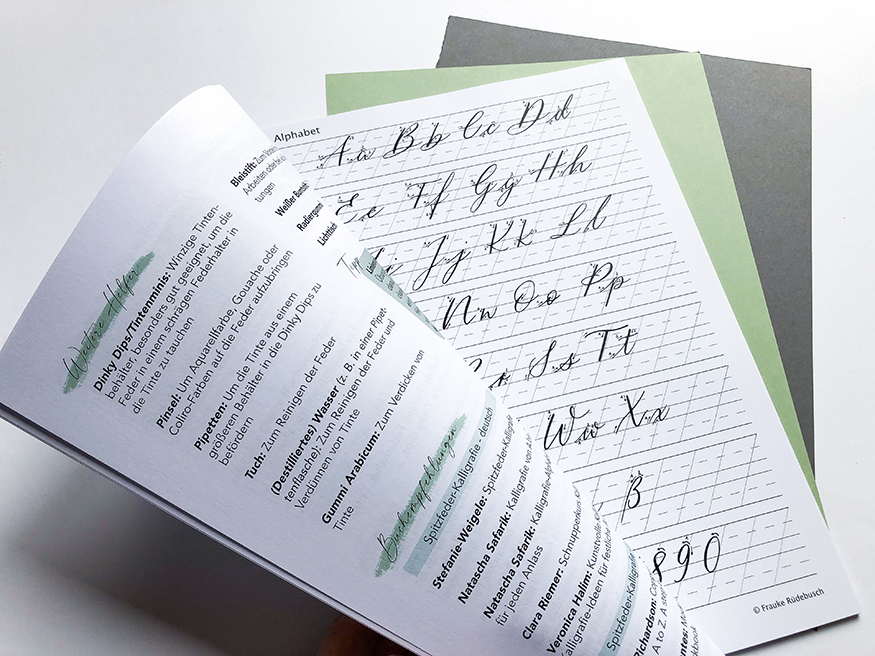 Weitere Helfer
Dinky Dips/Tintenminis: Winzige Tinten-
behälter, besonders gut geeignet, um die
Feder in einem schrägen Federhalter in
die Tinte zu tauchen
Pinsel: Um Aquarellfarbe, Gouache oder
Coliro-Farben auf die Feder aufzubringen
Pipetten: Um die Tinte aus einem
größeren Behälter in die Dinky Dips zu
befördern
Tuch: Zum Reinigen der Feder
(Destilliertes) Wasser (z. B. in einer Pipet-
tenflasche): Zum Reinigen der Feder und
Verdünnen von Tinte
Gummi Arabicum: Zum Verdicken von
Tinte
Buchempfehlungen
Spitzfeder-Kalligrafie - deutsch
Stefanie-Weigele: Spitzfeder-Kalligrafie
Natascha Safarik: Kalligrafie von A
Natascha Safarik: Kalligrafie-Alphab
für jeden Anlass
Clara Riemer: Schnupperkurs
Veronica Halim: Kunstvolle
Kalligrafie-Ideen für festliche
Spitzfeder-Kalligrafie
Richardson:
A to Z. A
Bleistift: Zum
Arbeiten oder
tungen
Weißer
Radiergummi
Tipp
Alphabet
A a B b C c D d
E e F f G g H h
J j K k L l
N n O o P p
S s T t
W w X x
ß
8 9 0
© Frauke Rüdebusch